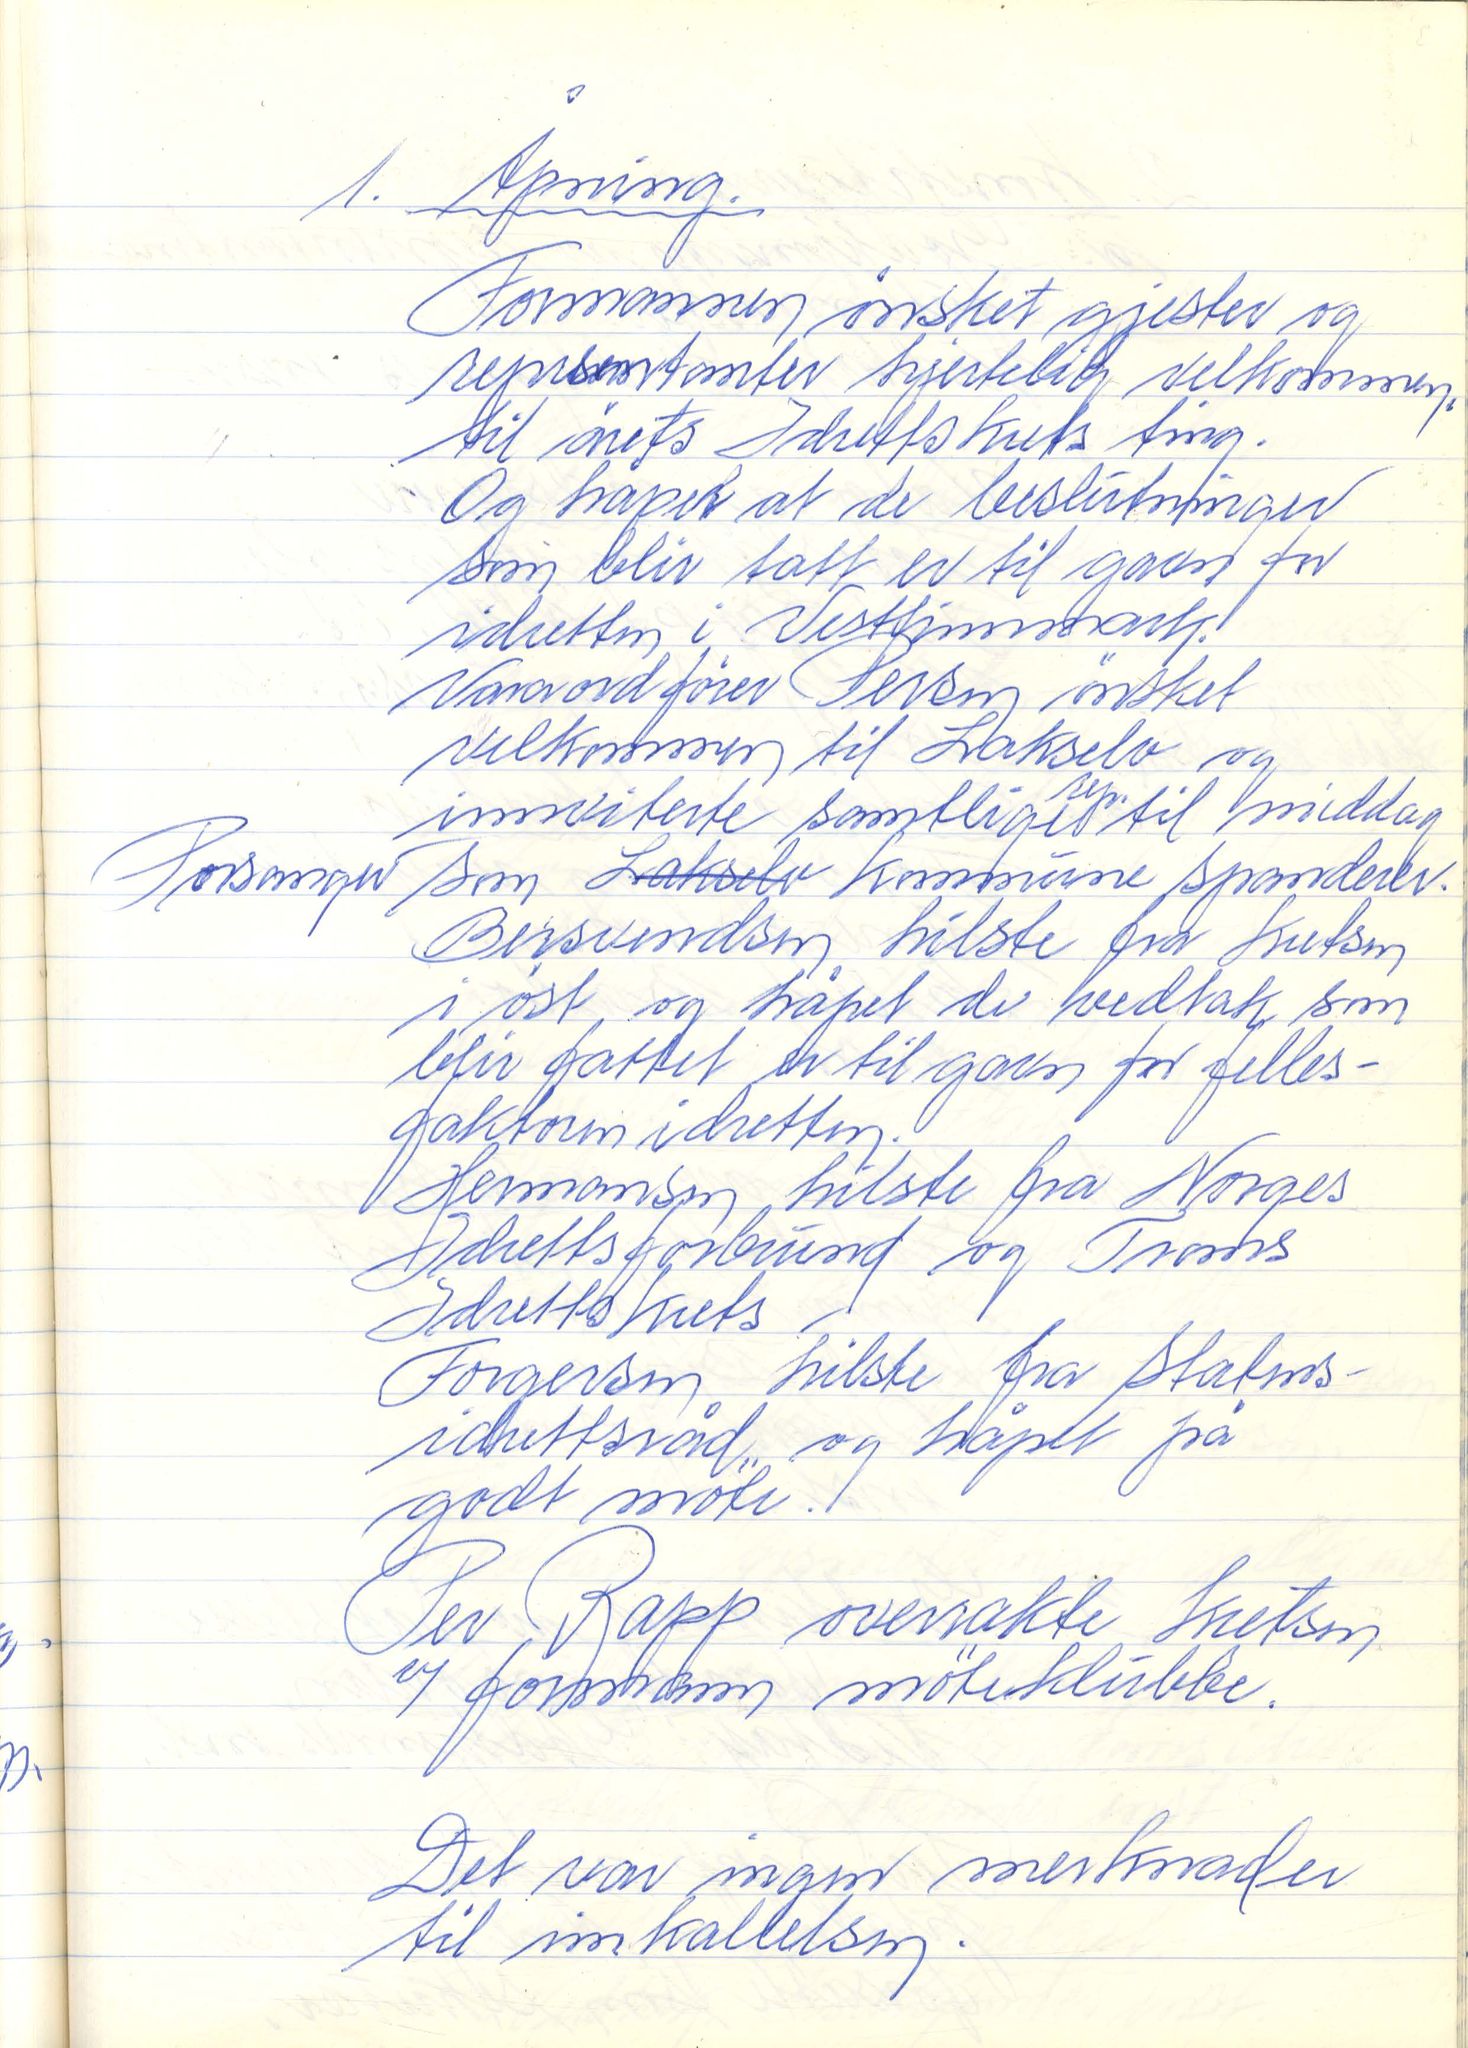 1. Åpning.
Formannen önsket gjester og
representanter hjertelig velkommen,
til årets Idrettskrets ting.
Og håper at de beslutninger
som blir tatt er til gavn for
idretten i Vestfinnmark.
Varaordförer Persen önsket
velkommen til Lakselv og
innviterte samtlige rep. til middag
Porsanger som Lakselv kommune spanderer.
Bersvendsen hilste fra kretsen
i öst, og håpet de vedtak som
blir fattet er til gavn for felles-
faktoren idretten.
Hermansen hilste fra Norges
Idrettsforbund og Troms
Idrettskrets
Torgersen hilste fra Statens-
idrettsråd, og håpet på
godt möte.
Per Rapp overrakte kretsen
v/ formann möteklubbe.
Det var ingen merknader
til innkallelsen.